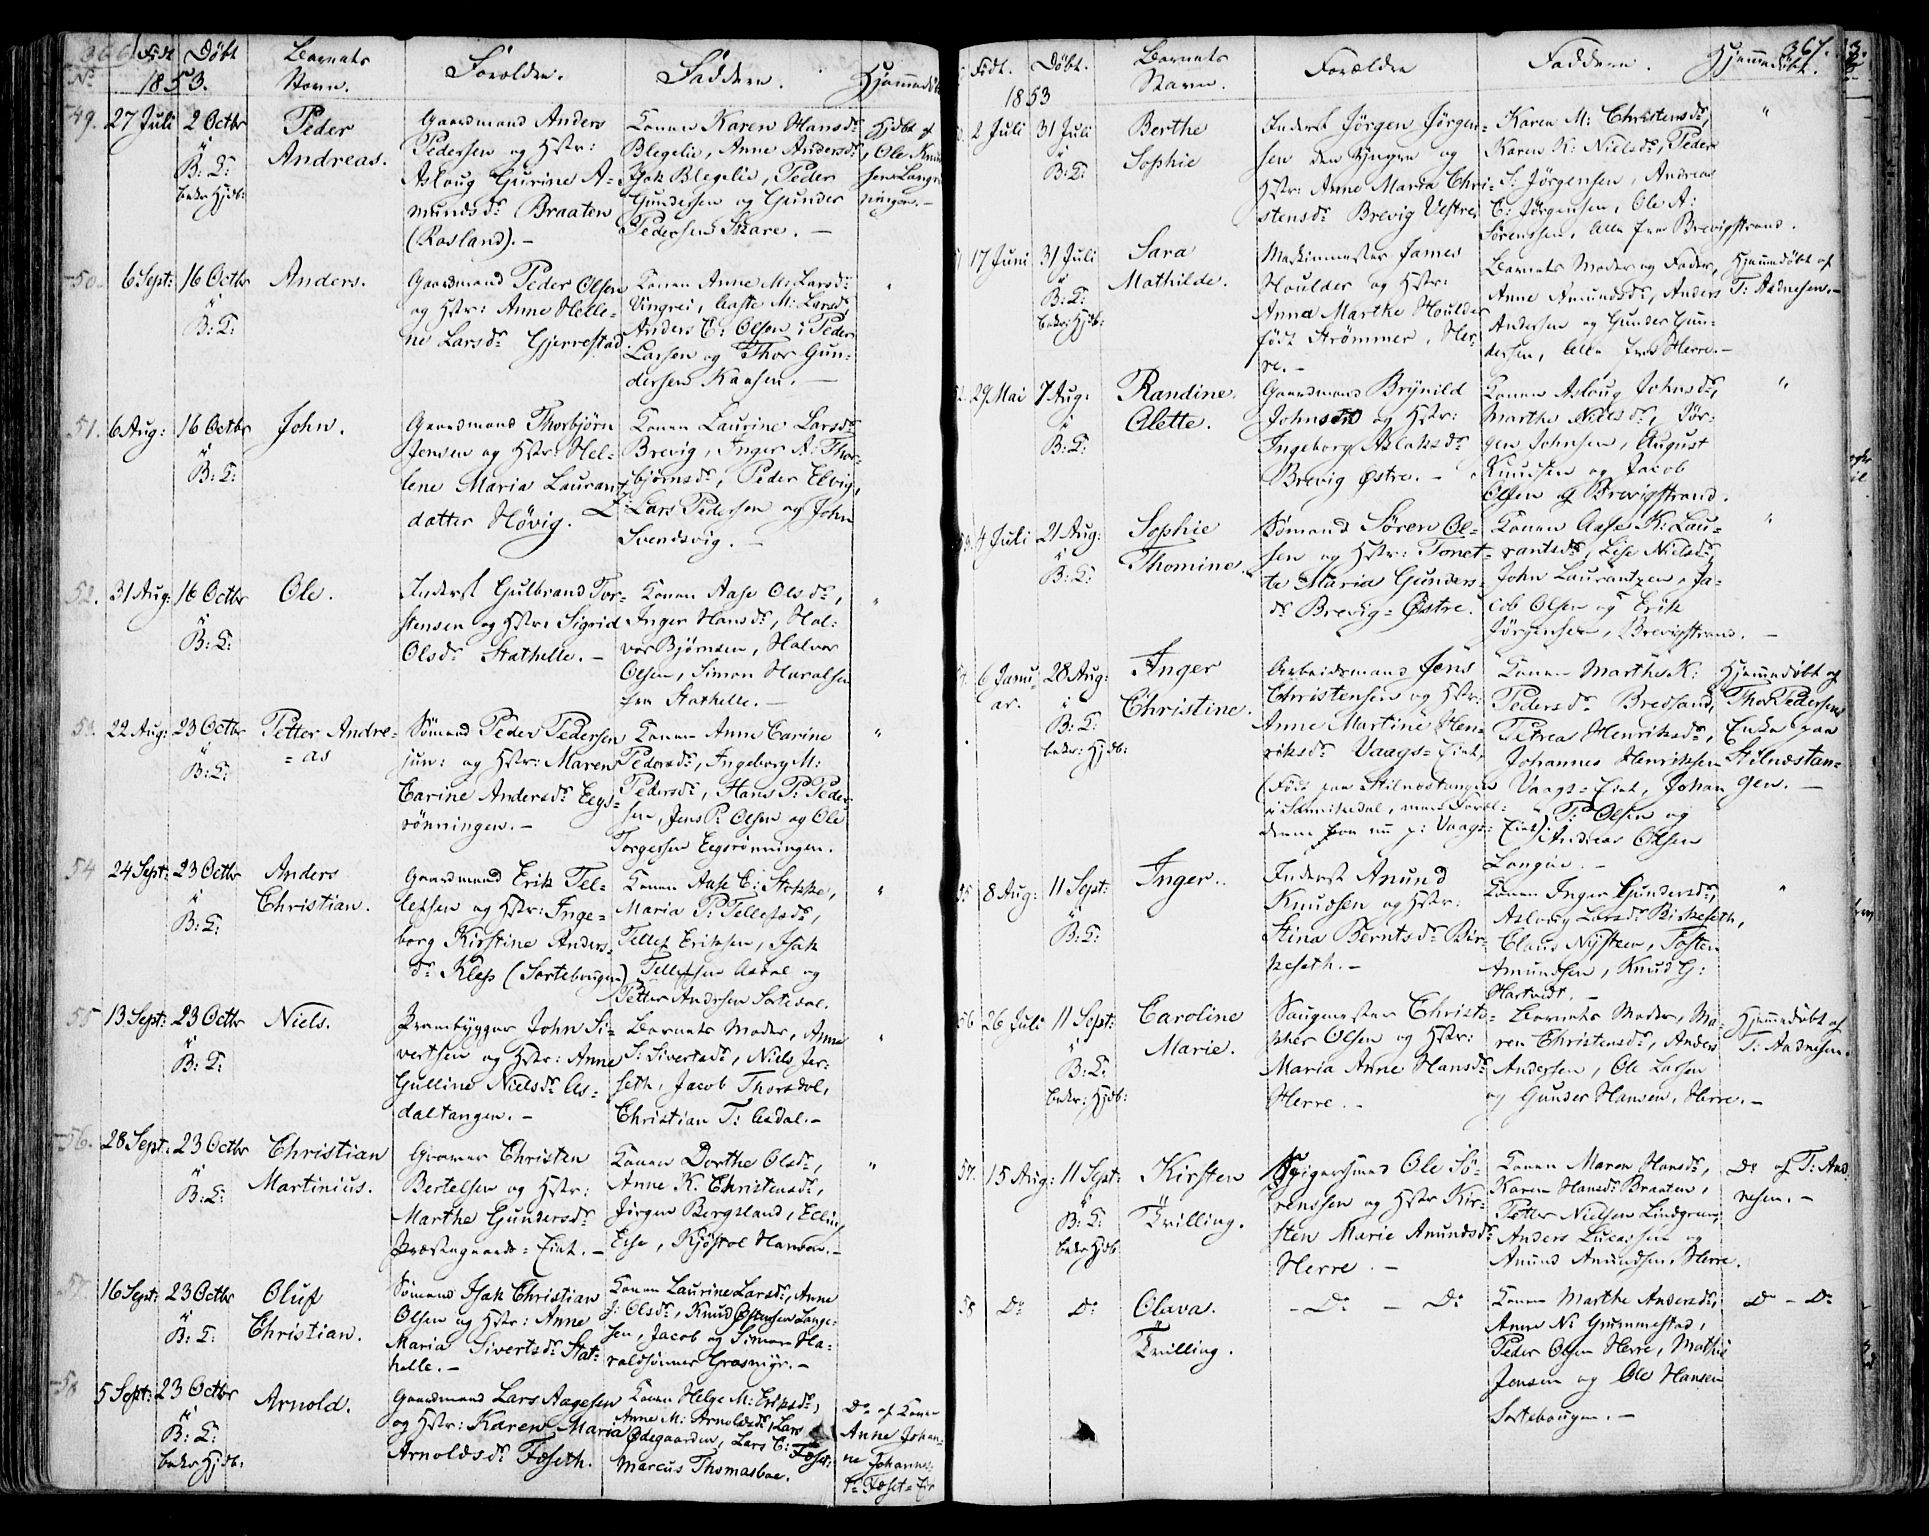 366
No
Födt Döbt
1853.
Barnets
Navn.
Forældre.
Faddere.
Hjemmedöbt
49. 27 Juli 2 Octbr
B: T:
bekr Hjdb:
Peder
Andreas.
Gaardmand Anders
Pedersen og Hstr:
Aslaug Gurine A-
munds dr Braaten
(Rosland). -
Konen Karen Hansdr
Blegelie, Anne Andersdr
Isak Blegelie, Peder
Gundersen og Gunder
Pedersen Skare. -
Hjdbt af
Ole Knud
sen Langrø
ningen. -
50. 6 Sept: 16 Octbr
B: T:
Anders.
Gaardmand Peder Olsen
og Hstr: Anne Helle-
ne Larsdr Gjerrestad.
Konen Anne M: Larsdr
Vingrei, Aaste M: Larsdr
Anders C: Olsen, Peder
Larsen og Thor Gun-
dersen Kaasen. -
"
51. 6 Aug: 16 Octbr
B: T:
John.
Gaardmand Thorbjörn
Jensen og Hstr: Hel-
lene Maria Laurantz
datter Hövig.
Konen Laurine Larsdr
Brevig, Inger A: Thor-
björnsdr, Peder Elvig,
Lars Pedersen og John
Svendsvig. -
52. 31 Aug: 16 Octbr
B: T:
Ole.
Inderst Gulbrand Tor-
stensen og Hstr: Sigrid
Olsdr Stathelle. -
Konen Aase Olsdr,
Inger Hansdr, Hal-
vor Björnsen, Halvor
Olsen, Simon Haralsen
fra Stathelle. -
"
53. 22 Aug: 23 Octbr
B: T:
Petter Andre-
= as
Sömand Peder Pedersen
jun: og Hstr: Maren
Carine Andersdr Eegs-
rönningen. -
Konen Anne Carine
Pedersdr, Ingeborg M:
Pedersdr, Hans P: Peder-
sen, Jens P: Olsen og Ole
Torgersen Eegsrönningen.
"
54 24 Sept: 23 Octbr
B: T:
Anders
Christian.
Gaardmand Erik Tel-
lefsen og Hstr: Inge-
borg Kirstine Anders-
dr Klep (Sortebougen)
Konen Aase E: Stokke,
Maria P: Tellefsdr,
Tellef Eriksen, Isak
Tellefsen Aasdal og
Petter Andersen Sortedal.
"
55 13 Sept: 23 Octbr
B: T:
Niels.
Prambygger John Si-
vertsen og Hstr: Anne
Gulline Nielsdr As-
daltangen. -
Barnets Moder, Anne
S: Sivertsdr, Niels Jer-
seth, Jacob Thorsdal,
Christian T: Asdal. -
"
56. 28 Sept: 23 Octbr
B: T:
Christian
Martinius.
Graver Christen
Bertelsen og Hstr:
Marthe Gundersdr
Præstegaards-Eiet. -
Konen Dorthe Olsdr,
Anne K. Christensdr,
Jörgen Bergsland, Elling
Eese, Kjöstol Hansen. -
"
57. 16 Sept: 23 Octbr
B: T:
Oluf
Christian.
Sömand Isak Christian
Olsen og Hstr: Anne
Maria Sivertsdr Stat-
helle. -
Konen Laurine Larsdr, Anne
J: Olsdr, Knud Östensen Lange-
sen, Jacob og Simon Ha-
raldsönner Grasmyr. -
58 5 Sept: 23 Octbr
B: T:
bekr Hjdb:
Arnold.
Gaardmand Lars Aagesen
og Hstr: Karen Maria
Arnoldsdr Foseth.
Konen Helge M: Eriksdr,
Anne M: Arnoldsdr, Lars
Ødegaarden, Lars C: Foset:
Marcus Thomasbae.
Do af Konen
Anne Johan-
ne Johannes-
dr Foset-Eie
367.
Födt. Döbt.
1853
Barnets
Navn.
Forældre
Faddere.
Hjemmedöbt.
2 Juli 31 Juli
B: T:
Berthe
Sophie
Inderst Jörgen Jörgen-
sen den yngre og
Hstr: Anne Maria Chri-
stensdr Brevig Vestre,
Karen M: Christensdr,
Karen K: Nielsdr, Peder
S: Jörgensen, Andreas
C: Jörgensen, Ole A:
Sörensen, Alle fra Brevigstrand.
"
17 Juni 31 Juli
B: T:
bekr: Hjdb:
Sara
Mathilde.
Maskinmester James
Houlder og Hstr:
Anna Marthe Houlder
födt Strömmer, Her-
re. -
Barnets Moder og Fader,
Anne Amundsdr, Anders
Andersen og Gunder Gun-
dersen, Alle fra Herre. -
Hjemmedöbt af
T: Aadnesen. -
29 Mai 7 Aug:
B: T:
Randine
Alette.
Gaardmand Brynild
Johnsen og Hstr:
Ingeborg Aslaksdr
Brevig Østre. -
Konen Aslaug Johnsdr,
Marthe Nielsdr, Jör-
gen Johnsen, August
Knudsen og Jacob
Olsen af Brevigstrand.
"
4 Juli 21 Aug:
B: T:
Sophie
Thomine.
Sömand Sören Ol-
sen og Hstr: Tonet-
te Maria Gunders-
dr Brevig-Østre.
Konen Aase K: Lau-
rantsdr, Lise Nielsdr,
John Laurantzen, Ja-
cob Olsen og Erik
Jörgensen, Brevigstrand. -
"
6 Janu-
ar. 28 Aug:
B: T:
bekr: Hjdb:
Inger
Christine.
Arbeidsmand Jens
Christensen og Hstr:
Anne Martine Hen-
riksdr Vaags-Eiet,
(Födt paa Stilnestangen
i Sannikedal, men Foræl-
drene boe nu p: Vaags-Eiet).
Konen Marthe K:
Pedersdr Bredsand,
Petrea Henriksdr,
Johannes Henriksen
Vaags-Eiet, Johan
T: Olsen og
Andreas Olsen
Langöe. -
Hjemmedöbt af
Thor Pedersens
Enke paa
Stilnæstan-
gen. -
55 8 Aug: 11 Sept:
B: T:
Inger.
Inderst Anund
Knudsen og Hstr:
Stina Berntsdr Bir-
keseth. -
Konen Inger Gundersdr,
Aslaug Larsdr Birkeseth,
Claus Nysteen, Tosten
Amundsen, Knud G:
Hartvedt. -
"
56 26 Juli 11 Sept:
B: T:
bekr: Hjdb:
Caroline
Marie.
Saugmester Christo-
pher Olsen og Hstr:
Maria Anne Hansdr
Herre. -
Barnets Moder, Ma-
ren Christensdr, Anders
Andersen, Ole Larsen
og Gunder Hansen, Herre. -
Hjemmedöbt af
T: Aadnesen.
57. 15 Aug: 11 Sept:
B: T:
bekr Hjdb
Kirsten
Tvilling.
Spigersmed Ole Sö-
renssen og Hstr Kir-
sten Marie Anundsdr
Herre. -
Konen Maren Hansdr,
Karen Hansdr Braaten,
Petter Nielsen Lindgren,
Anders Lucassen og
Anund Anundsen, Herre.
Do af T: Aad
nesen. -
58 Do Do
Olava.
Tvilling.
- Do - Do
Konen Marthe Andersdr,
Anne N: Grummestad,
Peder Olsen Herre, Mathis
Jensen og Ole Hansen
Sortebougen. -
Do - Do